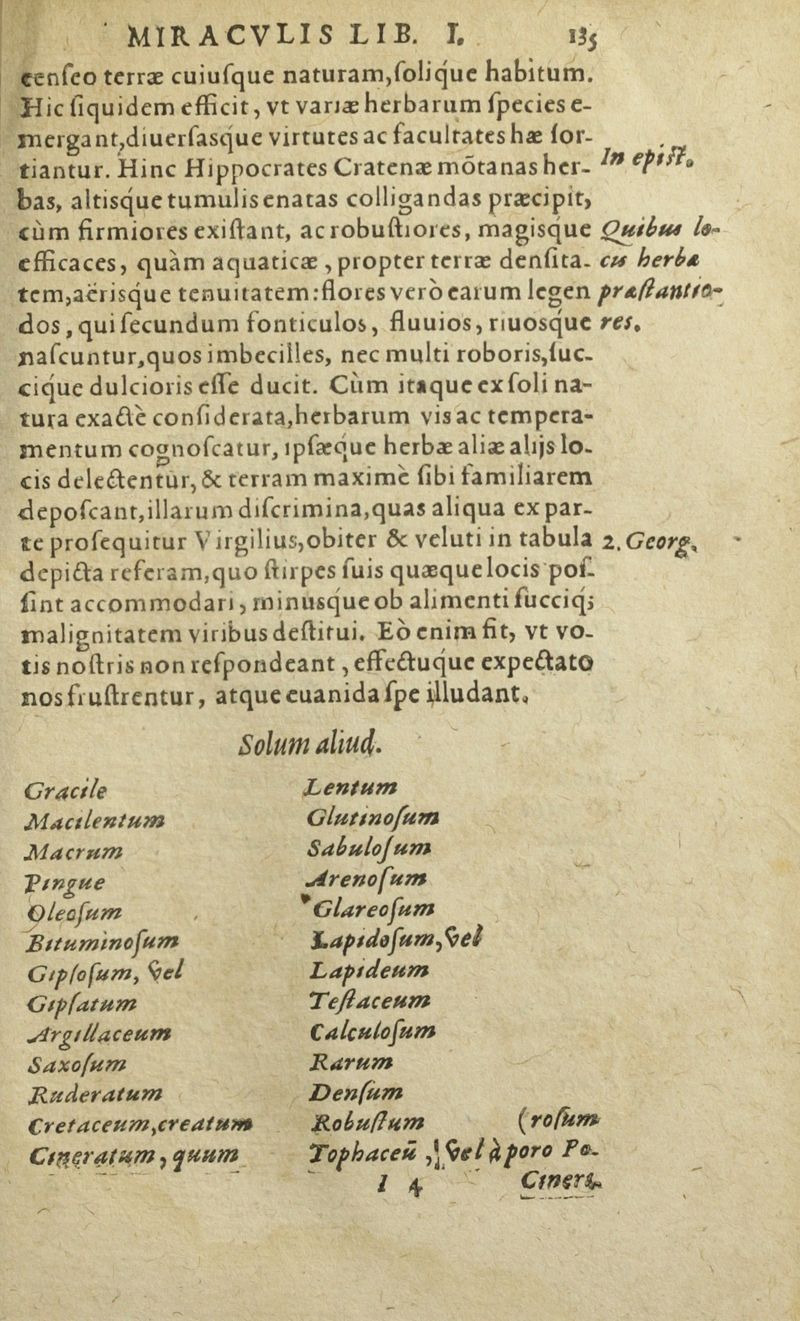 MIRACVLIS LIB. I. 135
cenſeo terræ cuiuſque naturam,ſolique habitum.
Hic ſiquidem efficit, vt variæ herbarum ſpecies e-
mergant,diuerſasque virtutes ac facultates hæ ſor-
tiantur. Hinc Hippocrates Cratenæ mōtanas her-
In epiſt.
bas, altisque tumulis enatas colligandas præcipit,
cùm firmiores exiſtant, ac robuſtiores, magisque
Quibus lo-
efficaces, quàm aquaticæ, propter terræ denſita-
cis herbæ
tem,aërisque tenuitatem:flores verò earum legen
præſtantio-
dos, qui ſecundum fonticulos, fluuios, riuosque
res.
naſcuntur,quos imbecilles, nec multi roboris,ſuc-
cique dulcioris eſſe ducit. Cùm itaque ex ſoli na-
tura exactè conſiderata,herbarum vis ac tempera-
mentum cognoſcatur, ipſæque herbæ aliæ alijs lo-
cis delectentur, & terram maximè ſibi familiarem
depoſcant,illarum diſcrimina,quas aliqua ex par-
te proſequitur Virgilius,obiter & veluti in tabula
2. Georg.
depicta referam,quo ſtirpes ſuis quæque locis poſ-
ſint accommodari, minusque ob alimenti ſucciq;
malignitatem viribus deſtitui. Eò enim fit, vt vo-
tis noſtris non reſpondeant, effectuque expectato
nos fruſtrentur, atque euanida ſpe illudant.
Solum aliud.
Gracile
Macilentum
Macrum
Pingue
Oleoſum
Bituminoſum
Gipſoſum, vel
Gipſatum
Argillaceum
Saxoſum
Ruderatum
Cretaceum,creatum
Cineratum, quum
Lentum
Glutinoſum
Sabuloſum
Arenoſum
Glareoſum
Lapidoſum,vel
Lapideum
Teſtaceum
Calculoſum
Rarum
Denſum
Robuſtum (roſum
Tophaceū, vel à poro Po-
I 4 Cineri.